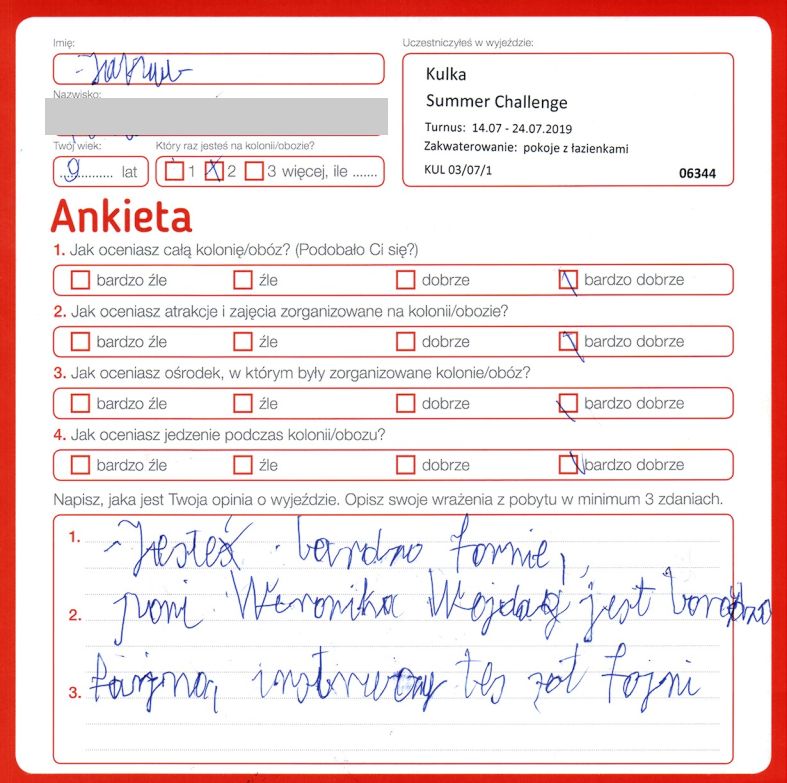 Imię:
Uczestniczyłeś w wyjeździe:
Nazwisko:
Kulka
Summer Challenge
Turnus: 14.07 - 24.07.2019
Zakwaterowanie: pokoje z łazienkami
KUL 03/07/1 06344
Twój wiek: Który raz jesteś na kolonii/obozie?
9 lat 1 2 3 więcej, ile .......
Ankieta
1. Jak oceniasz całą kolonię/obóz? (Podobało Ci się?)
bardzo źle źle dobrze bardzo dobrze
2. Jak oceniasz atrakcje i zajęcia zorganizowane na kolonii/obozie?
bardzo źle źle dobrze bardzo dobrze
3. Jak oceniasz ośrodek, w którym były zorganizowane kolonie/obóz?
bardzo źle źle dobrze bardzo dobrze
4. Jak oceniasz jedzenie podczas kolonii/obozu?
bardzo źle źle dobrze bardzo dobrze
Napisz, jaka jest Twoja opinia o wyjeździe. Opisz swoje wrażenia z pobytu w minimum 3 zdaniach.
1. bardzo fornie,
2. pani Weronika jest bardzo
3. fajna, tes fojni